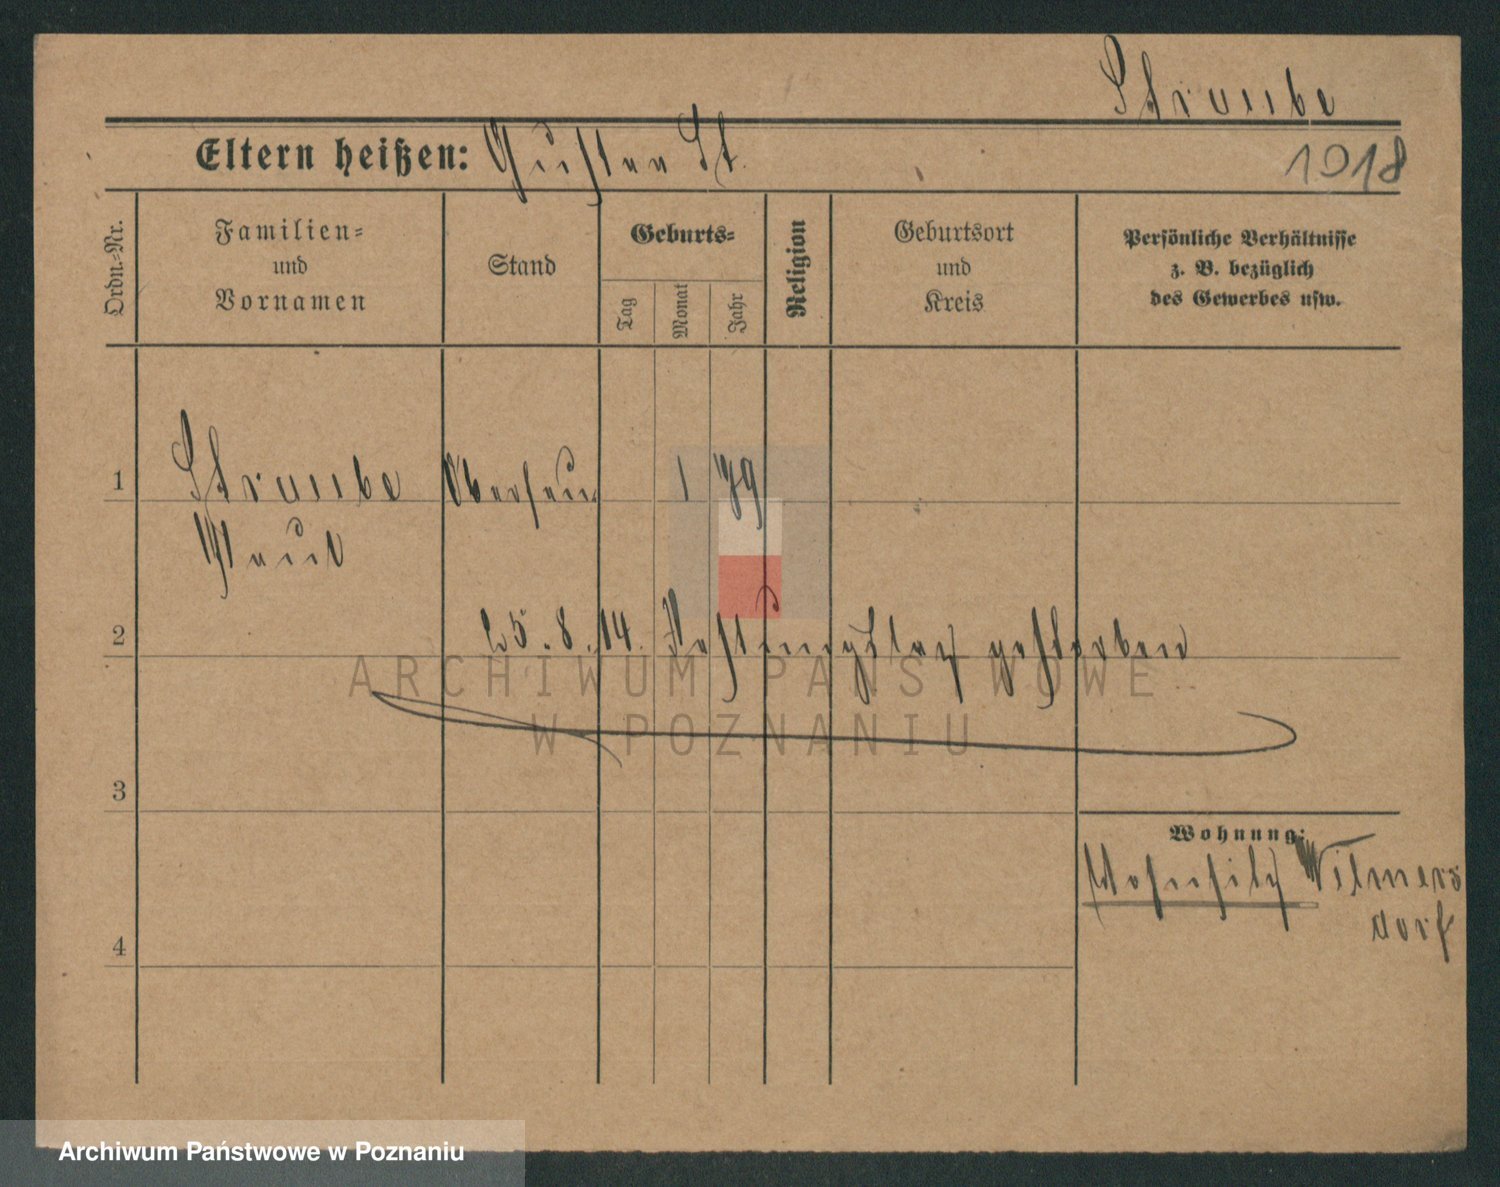 Straube
Eltern heißen: Gustav St.
1918
Ordn.-Nr.
Familien-
und
Vornamen
Stand
Geburts-
Tag
Monat
Jahr
Religion
Geburtsort
und
Kreis
Persönliche Verhältnisse
z. B. bezüglich
des Gewerbes usw.
1
Straube
1 79
Paul
2
25.8.14. gestorben
ARCHIWUM PAŃSTWOWE
W POZNANIU
3
Wohnung:
Wohnsitz Wilmers
dorf
4
Archiwum Państwowe w Poznaniu